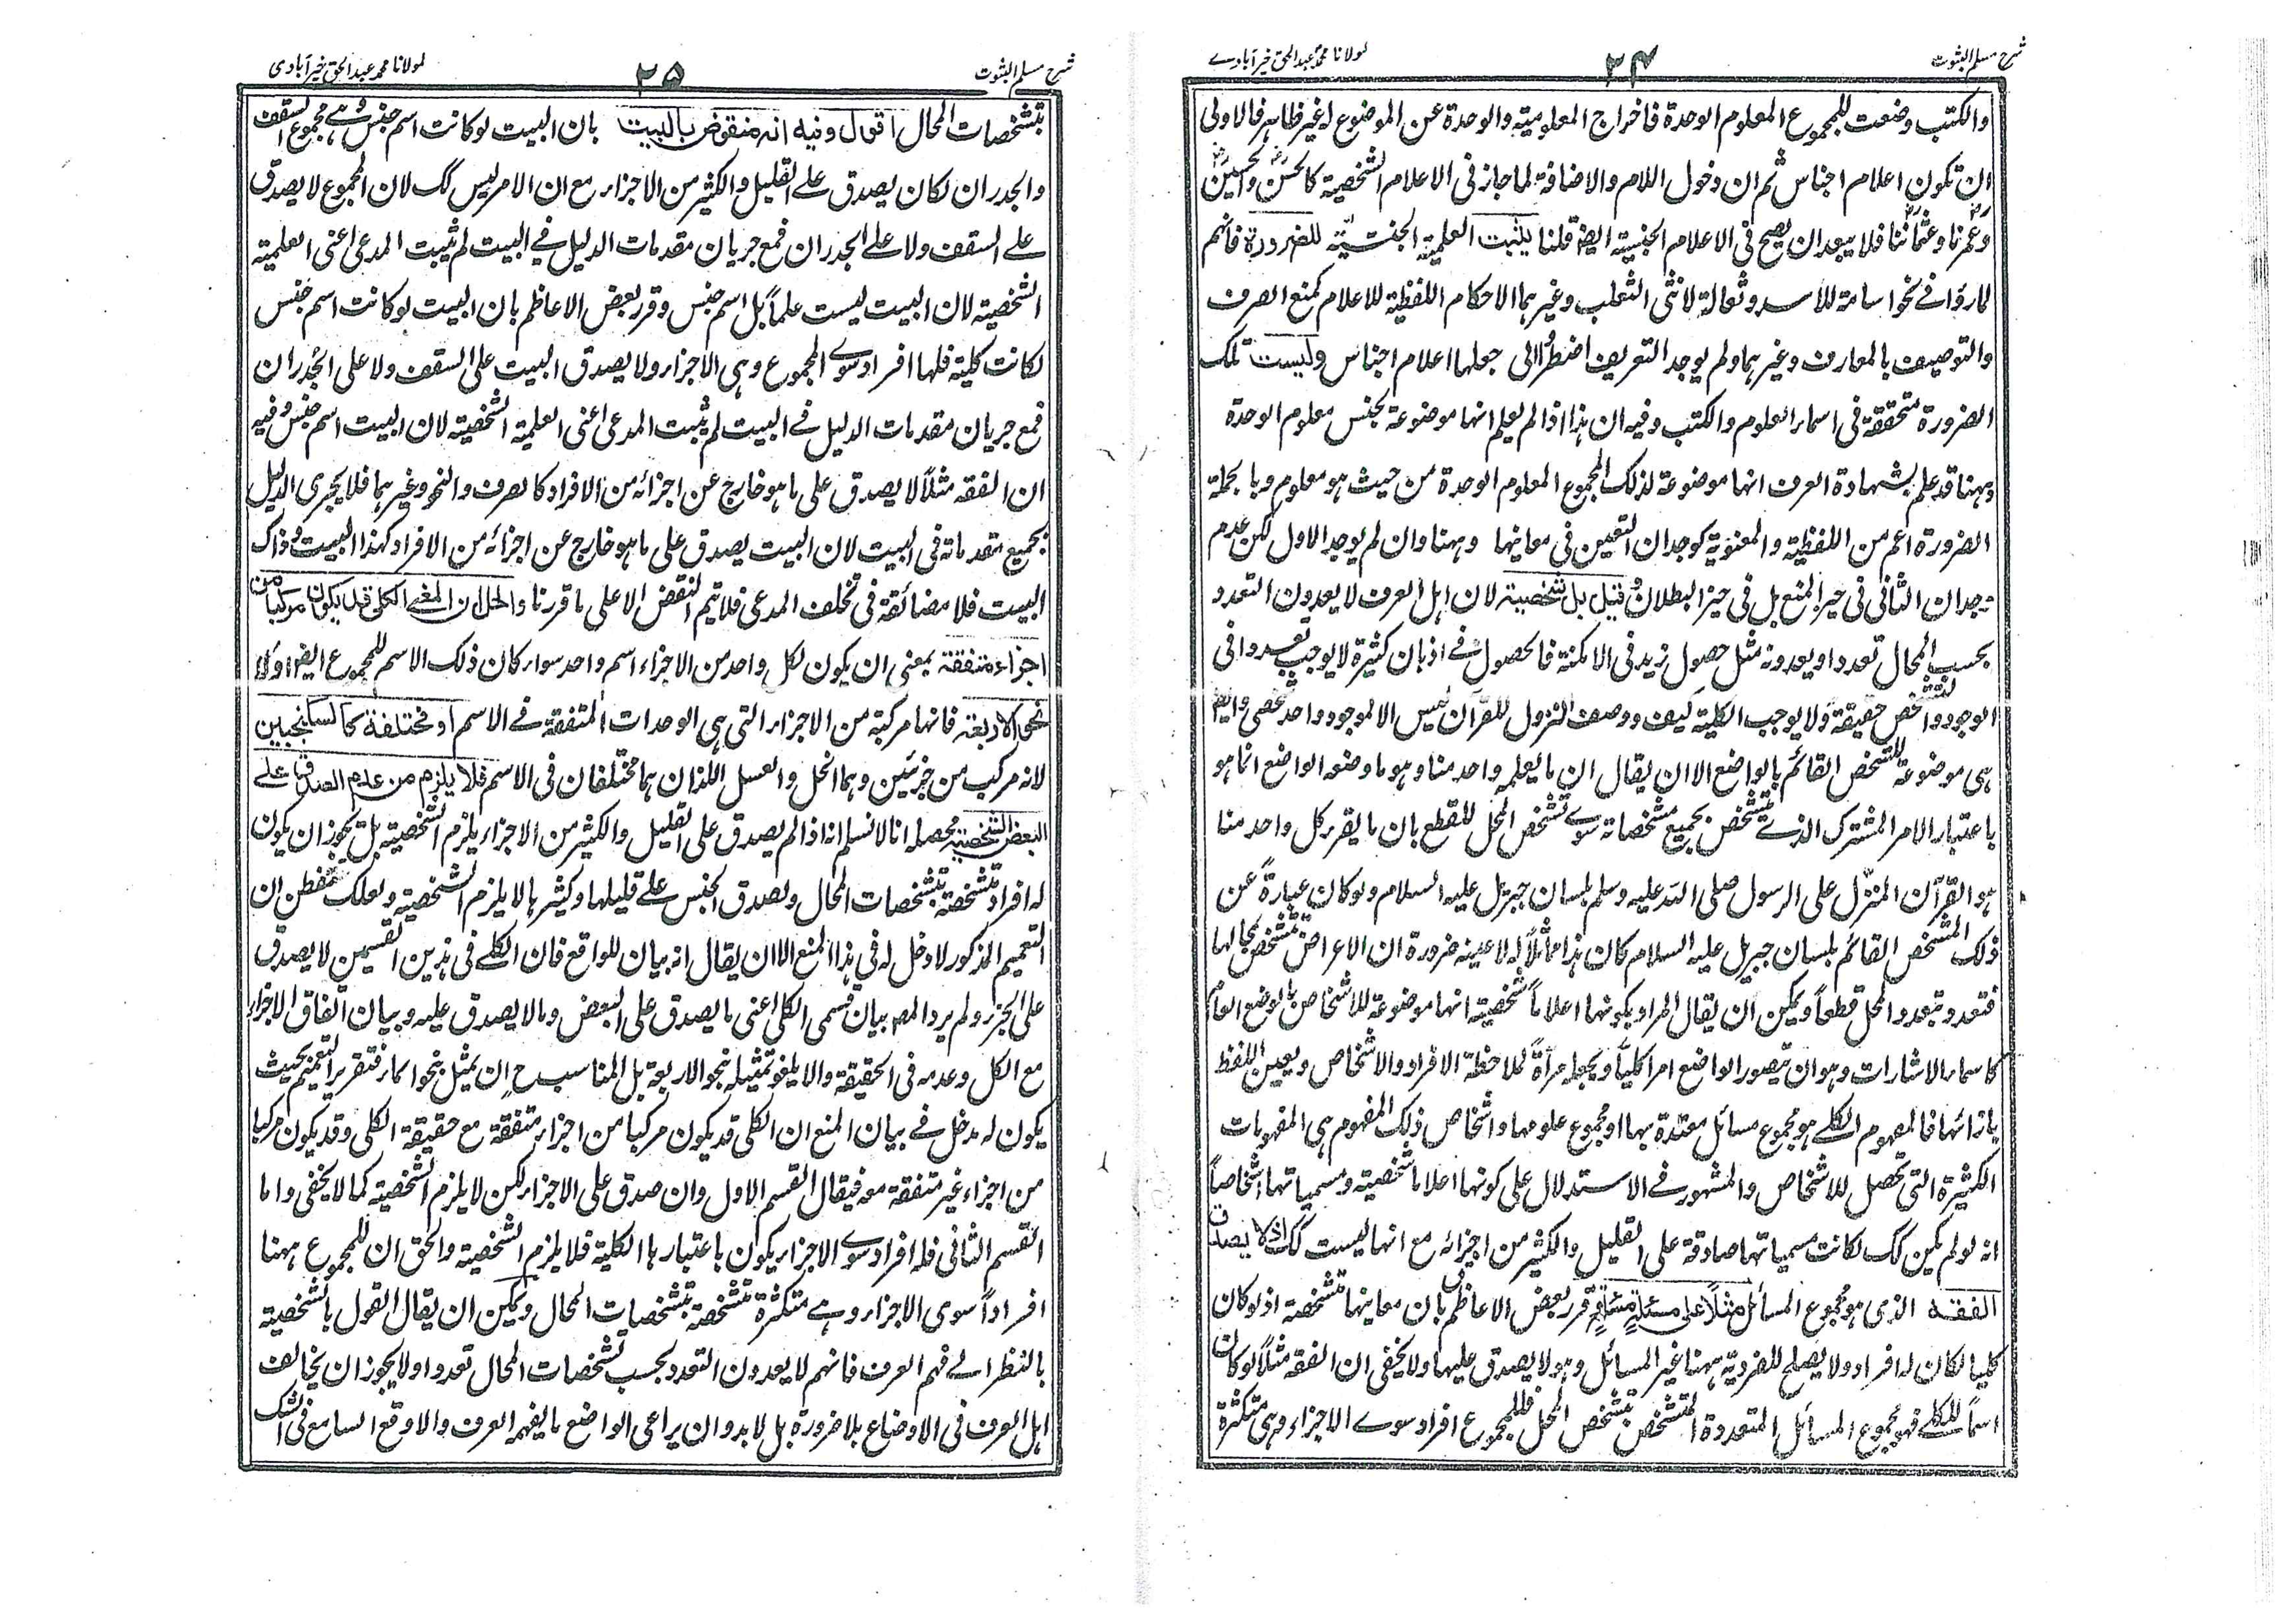 شرح مسلم الثبوت
۲۴
لمولانا محمد عبدالحق خیرآبادے
والكتب وضعت للمجموع المعلوم الوحدة فاخراج المعلومية والوحدة عن الموضوع له غير ظاهر فالاولى
ان تكون اعلام اجناس ثم ان دخول اللام والاضافة لما جاز فى الاعلام الشخصية كالحسن والحسين
وعمرنا وعثماننا فلا يبعد ان يصح فى الاعلام الجنسية ايضا قلنا يثبت العلمية الجنسية للضرورة فانهم
لما رؤا فے نحو اسامة للاسد وثعالة لانثى الثعلب وغيرهما الاحكام اللفظية للاعلام كمنع الصرف
والتوصيف بالمعارف وغيرهما ولم يوجد التعريف اضطروا الى جعلها اعلام اجناس وليست تلك
الضرورة متحققة فى اسماء العلوم والكتب وفيه ان هذا اذا لم يعلم انها موضوعة لجنس معلوم الوحدة
وههنا قد علم بشهادة العرف انها موضوعة لذلك المجموع المعلوم الوحدة من حيث هو معلوم وبالجملة
الضرورة اعم من اللفظية والمعنوية كوجدان التعين فى معانيها وههنا وان لم يوجد الاول لكن عدم
وجدان الثانى فى حيز المنع بل فى حيز البطلان وقيل بل شخصية لان اهل العرف لا يعدون التعدد
بحسب المحال تعددا ويعدونه مثل حصول زيد فى الامكنة فالحصول فے اذهان كثيرة لا يوجب تعددا فى
الوجود والتشخص حقيقة ولا يوجب الكلية كيف ووصف النزول للقرآن ليس الا لموجود واحد شخصى وايضا
هى موضوعة للتشخص القائم بالواضع الا ان يقال ان ما يعلمه واحد منا وهو ما وضعه الواضع انما هو
باعتبار الامر المشترك الذے تشخص بجميع مشخصاته سوے تشخص المحل للقطع بان ما يقرء كل واحد منا
هو القرآن المنزل على الرسول صلى الله عليه وسلم بلسان جبريل عليه السلام ولو كان عبارة عن
ذلك المشخص القائم بلسان جبريل عليه السلام كان هذا مماثلا له لا عينه ضرورة ان الاعراض تتشخص بمحالها
فتعدد بتعدد المحل قطعا ويمكن ان يقال المراد بكونها اعلاما شخصية انها موضوعة للاشخاص بالوضع العام
كاسماء الاشارات وهو ان يتصور الواضع امرا كليا ويجعله مرآة لملاحظة الافراد والاشخاص ويعين اللفظ
بازائها فالمفهوم الكلے هو مجموع مسائل معتدة بها او مجموع علومها واشخاص ذلك المفهوم هى المفهومات
الكثيرة التى تحصل للاشخاص والمشهور فے الاستدلال على كونها اعلاما شخصية ومسمياتها اشخاصا
انه لو لم يكن كك لكانت مسمياتها صادقة على القليل والكثير من اجزائه مع انها ليست كك اذ لا يصدق
الفقه الذى هو مجموع المسائل مثلا على مسئلة مسئلة وقرر بعض الاعاظم بان معانيها متشخصة اذ لو كان
كليا لكان له افراد ولا يصلح للفردية ههنا غير المسائل وهو لا يصدق عليها ولا يخفى ان الفقه مثلا لو كان
اسما للكلے فهو مجموع المسائل المتعددة المتشخص بتشخص المحل فللمجموع افراد سوے الاجزاء وهى متكثرة
شرح مسلم الثبوت
۲۵
لمولانا محمد عبدالحق خیرآبادی
بتشخصات المحال اقول وفيه انه منقوض بالبيت بان البيت لو كانت اسم جنس وهے مجموع السقف
والجدران لكان يصدق علے القليل والكثير من الاجزاء مع ان الامر ليس كك لان المجموع لا يصدق
علے السقف ولا علے الجدران فمع جريان مقدمات الدليل فے البيت لم يثبت المدعى اعنى العلمية
الشخصية لان البيت ليست علما بل اسم جنس وقرر بعض الاعاظم بان البيت لو كانت اسم جنس
لكانت كلية فلها افراد سوے المجموع وهى الاجزاء ولا يصدق البيت على السقف ولا على الجدران
فمع جريان مقدمات الدليل فے البيت لم يثبت المدعى اعنى العلمية الشخصية لان البيت اسم جنس وفيه
ان الفقه مثلا لا يصدق على ما هو خارج عن اجزائه من الافراد كالصرف والنحو وغيرهما فلا يجرى الدليل
بجميع مقدماته فى البيت لان البيت يصدق على ما هو خارج عن اجزائه من الافراد كهذا البيت وذاك
البيت فلا مضائقة فى تخلف المدعى فلا يتم النقض الا على ما قررنا والحل ان المعنى الكلى قد يكون مركبا من
اجزاء متفقة بمعنى ان يكون لكل واحد من الاجزاء اسم واحد سواء كان ذلك الاسم للمجموع ايضا اولا
نحو الاربعة فانها مركبة من الاجزاء التى هى الوحدات المتفقة فے الاسم او مختلفة كالسكنجبين
لانه مركب من جزئين وهما الخل والعسل اللذان هما مختلفان فى الاسم فلا يلزم من عدم الصدق على
البعض الشخصية محصله انا لا نسلم انه اذا لم يصدق على القليل والكثير من الاجزاء يلزم الشخصية بل يجوز ان يكون
له افراد متشخصة بتشخصات المحال ويصدق الجنس علے قليلها وكثيرها لا يلزم الشخصية ولعلك تتفطن ان
التعميم المذكور لا دخل له فى هذا المنع الا ان يقال انه بيان للواقع فان الكلے فى هذين القسمين لا يصدق
على الجزء ولم يرد المصـ بيان قسمى الكلى اعنى ما يصدق على البعض وما لا يصدق عليه وبيان اتفاق الاجزاء
مع الكل وعدمه فى الحقيقة والا يلغو تمثيله بنحو الاربعة بل المناسب ح ان يمثل بنحو الماء فتقرير التعميم بحيث
يكون له مدخل فے بيان المنع ان الكلى قد يكون مركبا من اجزاء متفقة مع حقيقة الكلى وقد يكون مركبا
من اجزاء غير متفقة معه فيقال القسم الاول وان صدق على الاجزاء لكن لا يلزم الشخصية كما لا يخفى واما
القسم الثانى فله افراد سوے الاجزاء يكون باعتبارها الكلية فلا يلزم الشخصية والحق ان للمجموع ههنا
افرادا سوى الاجزاء وهے متكثرة متشخصة بتشخصات المحال ويمكن ان يقال القول بالشخصية
بالنظر الے فهم العرف فانهم لا يعدون التعدد بحسب تشخصات المحال تعددا ولا يجوز ان يخالف
اهل العرف فى الاوضاع بلا ضرورة بل لا بد وان يراعى الواضع ما يفهمه العرف والا وقع السامع فى الشك